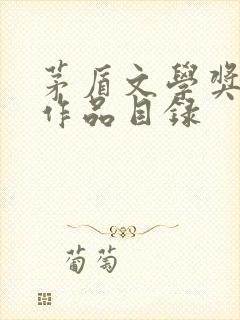 茅盾文學獎
作品目録
葡萄